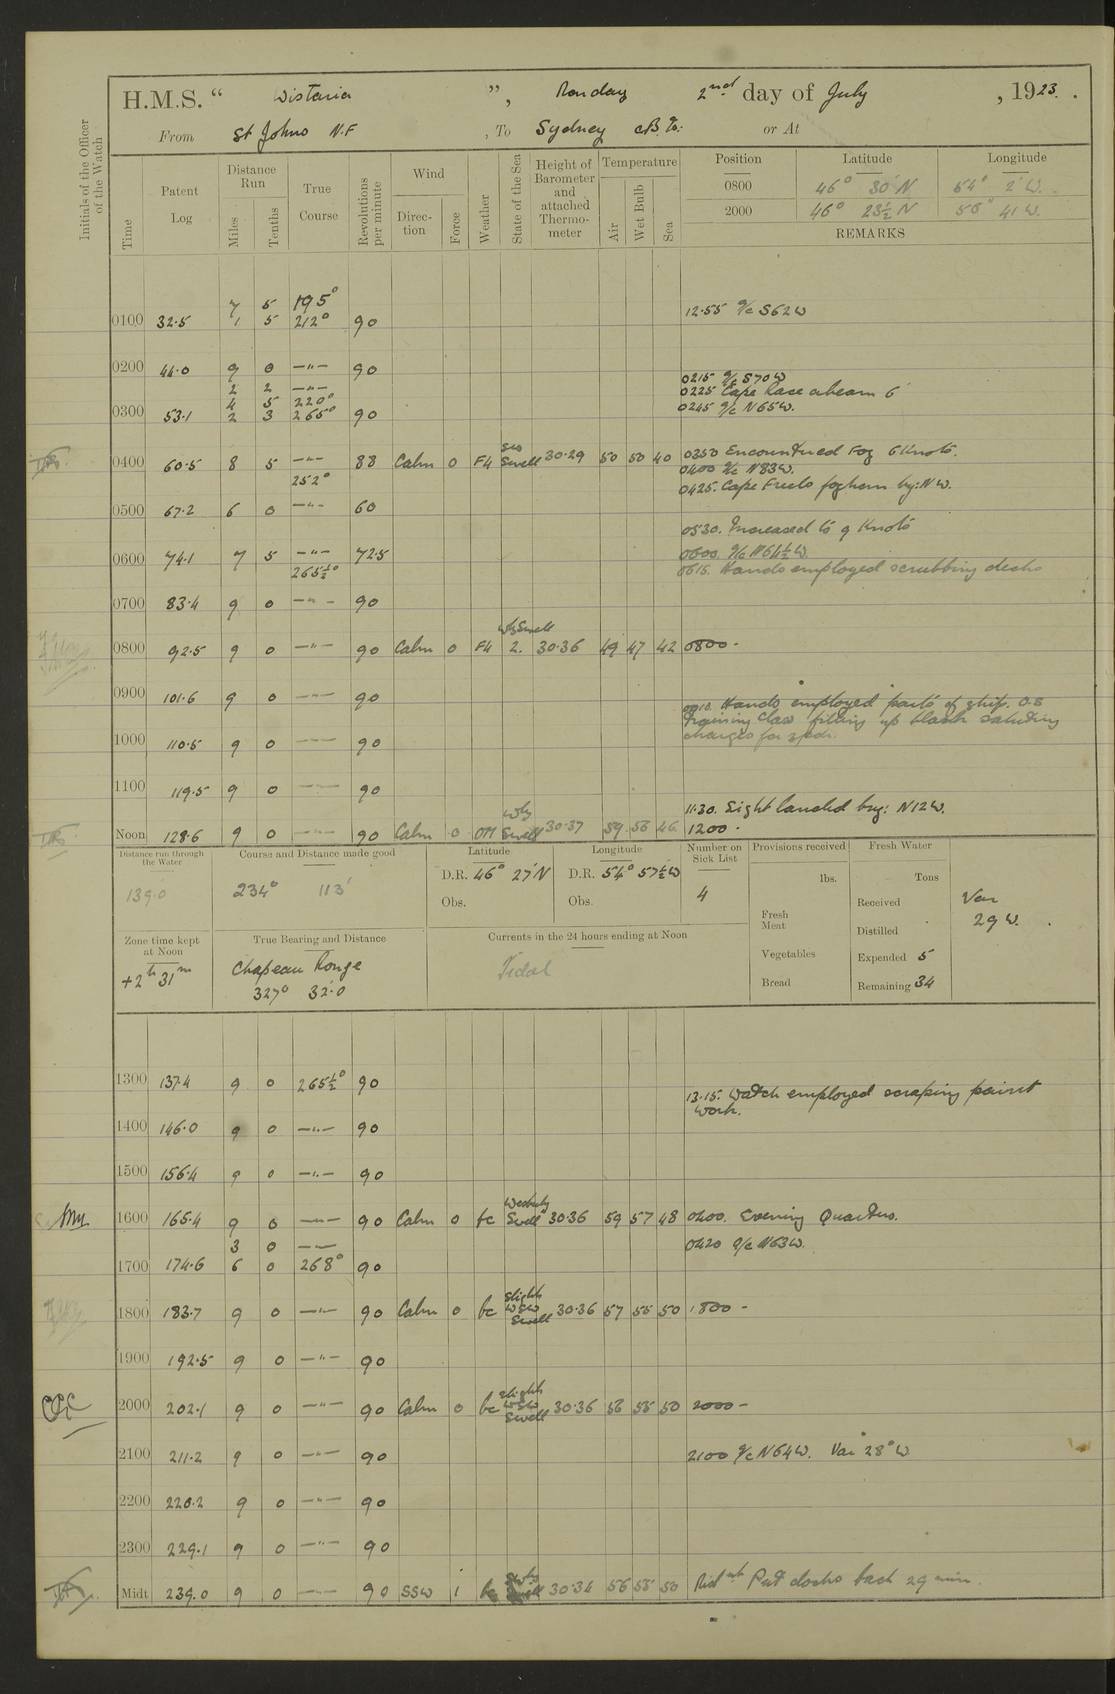 H.M.S. “ Wistaria ”, Monday 2nd day of July , 1923.
From St Johns N.F , To Sydney C.B. Is: or At
Initials of the Officer of the Watch
Time Patent Log Distance Run Miles Tenths True Course Revolutions per minute Wind Direction Force Weather State of the Sea Height of Barometer and attached Thermometer Temperature Air Wet Bulb Sea
Position Latitude Longitude
0800 46° 30' N 54° 2' W.
2000 46° 23½ N 56° 41 W.
REMARKS
7 5 195°
0100 32.5 1 5 212° 90 12.55 a/c S62W
0200 44.0 9 0 —"— 90
2 2 —"— 0215 a/c S70W
4 5 220° 0225 Cape Race abeam 6'
0300 53.1 2 3 265° 90 0245 a/c N65W.
0400 60.5 8 5 —"— 88 Calm 0 F4 Swell 30.29 50 50 40 0350 Encountered Fog 6 Knots.
0400 a/c N83W.
252° 0425. Cape Freels foghorn bg: NW.
0500 67.2 6 0 —"— 60
0530. Increased to 9 Knots
0600 74.1 7 5 —"— 72.5 0600. a/c N64½W.
265½° 0615. Hands employed scrubbing decks
0700 83.4 9 0 —"— 90
0800 92.5 9 0 —"— 90 Calm 0 F4 Wly Swell 2. 30.36 49 47 42 0800 -
0900 101.6 9 0 —"— 90 0910. Hands employed parts of ship. O.S
Training Class filling up blank saluting
1000 110.5 9 0 —"— 90 charges for 3pdr.
1100 119.5 9 0 —"— 90
11.30. Sight landed bng: N12W.
Noon 128.6 9 0 —"— 90 Calm 0 Wly Swell 30.37 59 56 46 1200 .
Distance run through the Water Course and Distance made good Latitude Longitude Number on Sick List Provisions received Fresh Water
139.0 234° 113' D.R. 46° 27'N D.R. 54° 57½W 4 lbs. Tons
Obs. Obs. Received Var
29 W.
Fresh Meat Distilled
Zone time kept at Noon True Bearing and Distance Currents in the 24 hours ending at Noon
+2h 31m Chapeau Rouge Tidal Vegetables Expended 5
327° 32'.0 Bread Remaining 34
1300 137.4 9 0 265½° 90
13.15. Watch employed scraping paint
work.
1400 146.0 9 0 —"— 90
1500 156.4 9 0 —"— 90
1600 165.4 9 0 —"— 90 Calm 0 fc Westerly Swell 30.36 59 57 48 0400. Evening Quarters.
3 0 —"— 0420 a/c N63W.
1700 174.6 6 0 268° 90
1800 183.7 9 0 —"— 90 Calm 0 bc Slight WSW Swell 30.36 57 55 50 1800 -
1900 192.5 9 0 —"— 90
2000 202.1 9 0 —"— 90 Calm 0 bc slight WSW Swell 30.36 56 55 50 2000 -
2100 211.2 9 0 —"— 90 2100 a/c N64W. Var 28° W
2200 220.2 9 0 —"— 90
2300 229.1 9 0 —"— 90
Midt 239.0 9 0 —"— 90 SSW 1 Swell 30.34 56 55 50 Midnt Put clocks back 29 min.